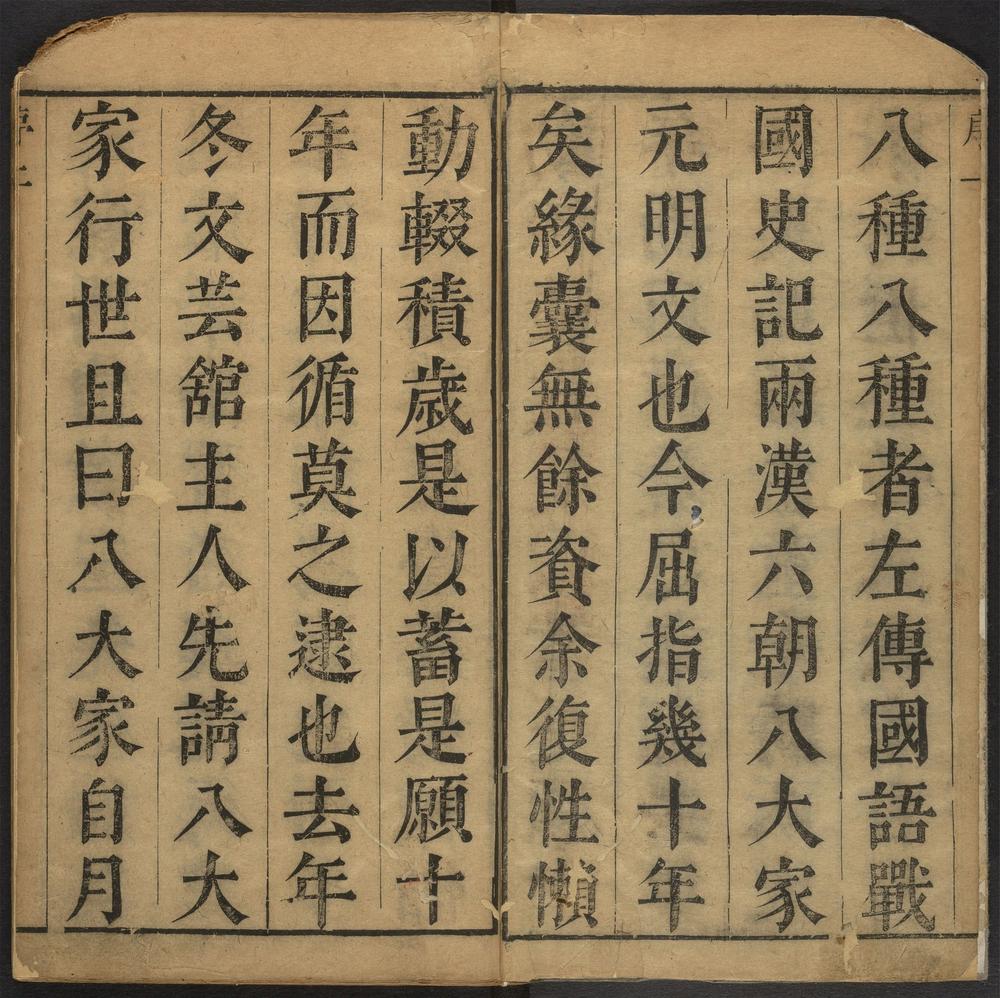 八種八種者左傳國語戰
國史記兩漢六朝八大家
元明文也今屈指幾十年
矣緣囊無餘資余復性懶
動輟積歲是以蓄是願十
年而因循莫之逮也去年
冬文芸舘主人先請八大
家行世且曰八大家自月